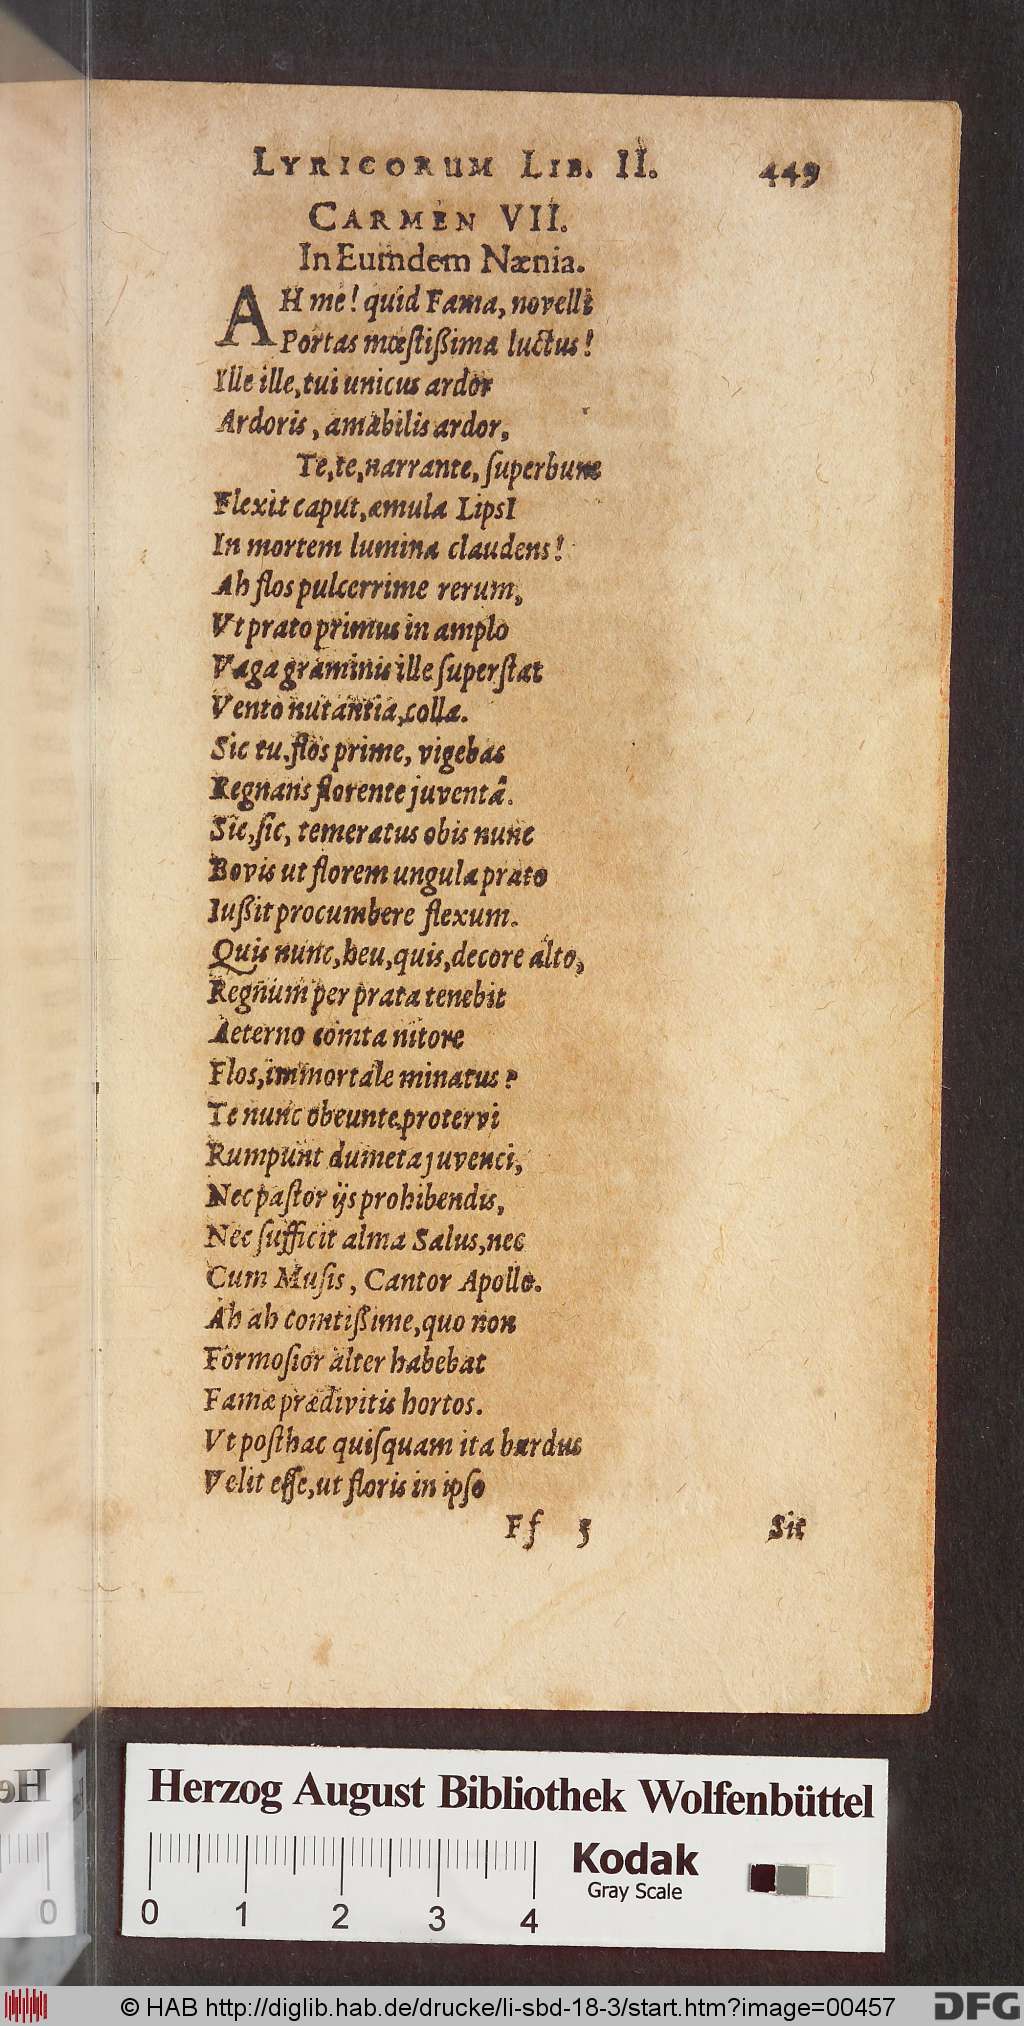 LYRICORUM LIB. II. 449
CARMEN VII.
In Eumdem Nænia.
AH me! quid Fama, novelli
Portas mœſtißima luctus!
Ille ille, tui unicus ardor
Ardoris, amabilis ardor,
Te, te, narrante, ſuperbum
Flexit caput, æmula LipsI
In mortem lumina claudens!
Ah flos pulcerrime rerum,
Vt prato primus in amplo
Vaga graminis ille ſuperſtat
Vento nutantia, colla.
Sic tu. flos prime, vigebas
Regnans florente juventâ.
Sic, ſic, temeratus obis nunc
Bovis ut florem ungula prato
Iußit procumbere flexum.
Quis nunc, heu, quis, decore alto,
Regnum per prata tenebit
Aeterno comta nitore
Flos, immortale minatus?
Te nunc obeunte, protervi
Rumpunt dumeta juvenci,
Nec paſtor ijs prohibendis,
Nec ſufficit alma Salus, nec
Cum Muſis, Cantor Apollo.
Ah ah comtißime, quo non
Formoſior alter habebat
Famæ prædivitis hortos.
Vt poſthac quiſquam ita bardus
Velit eſſe, ut floris in ipſo
Ff 3 Sit
Herzog August Bibliothek Wolfenbüttel
Kodak
Gray Scale
0 1 2 3 4
He
0
© HAB http://diglib.hab.de/drucke/li-sbd-18-3/start.htm?image=00457
DFG